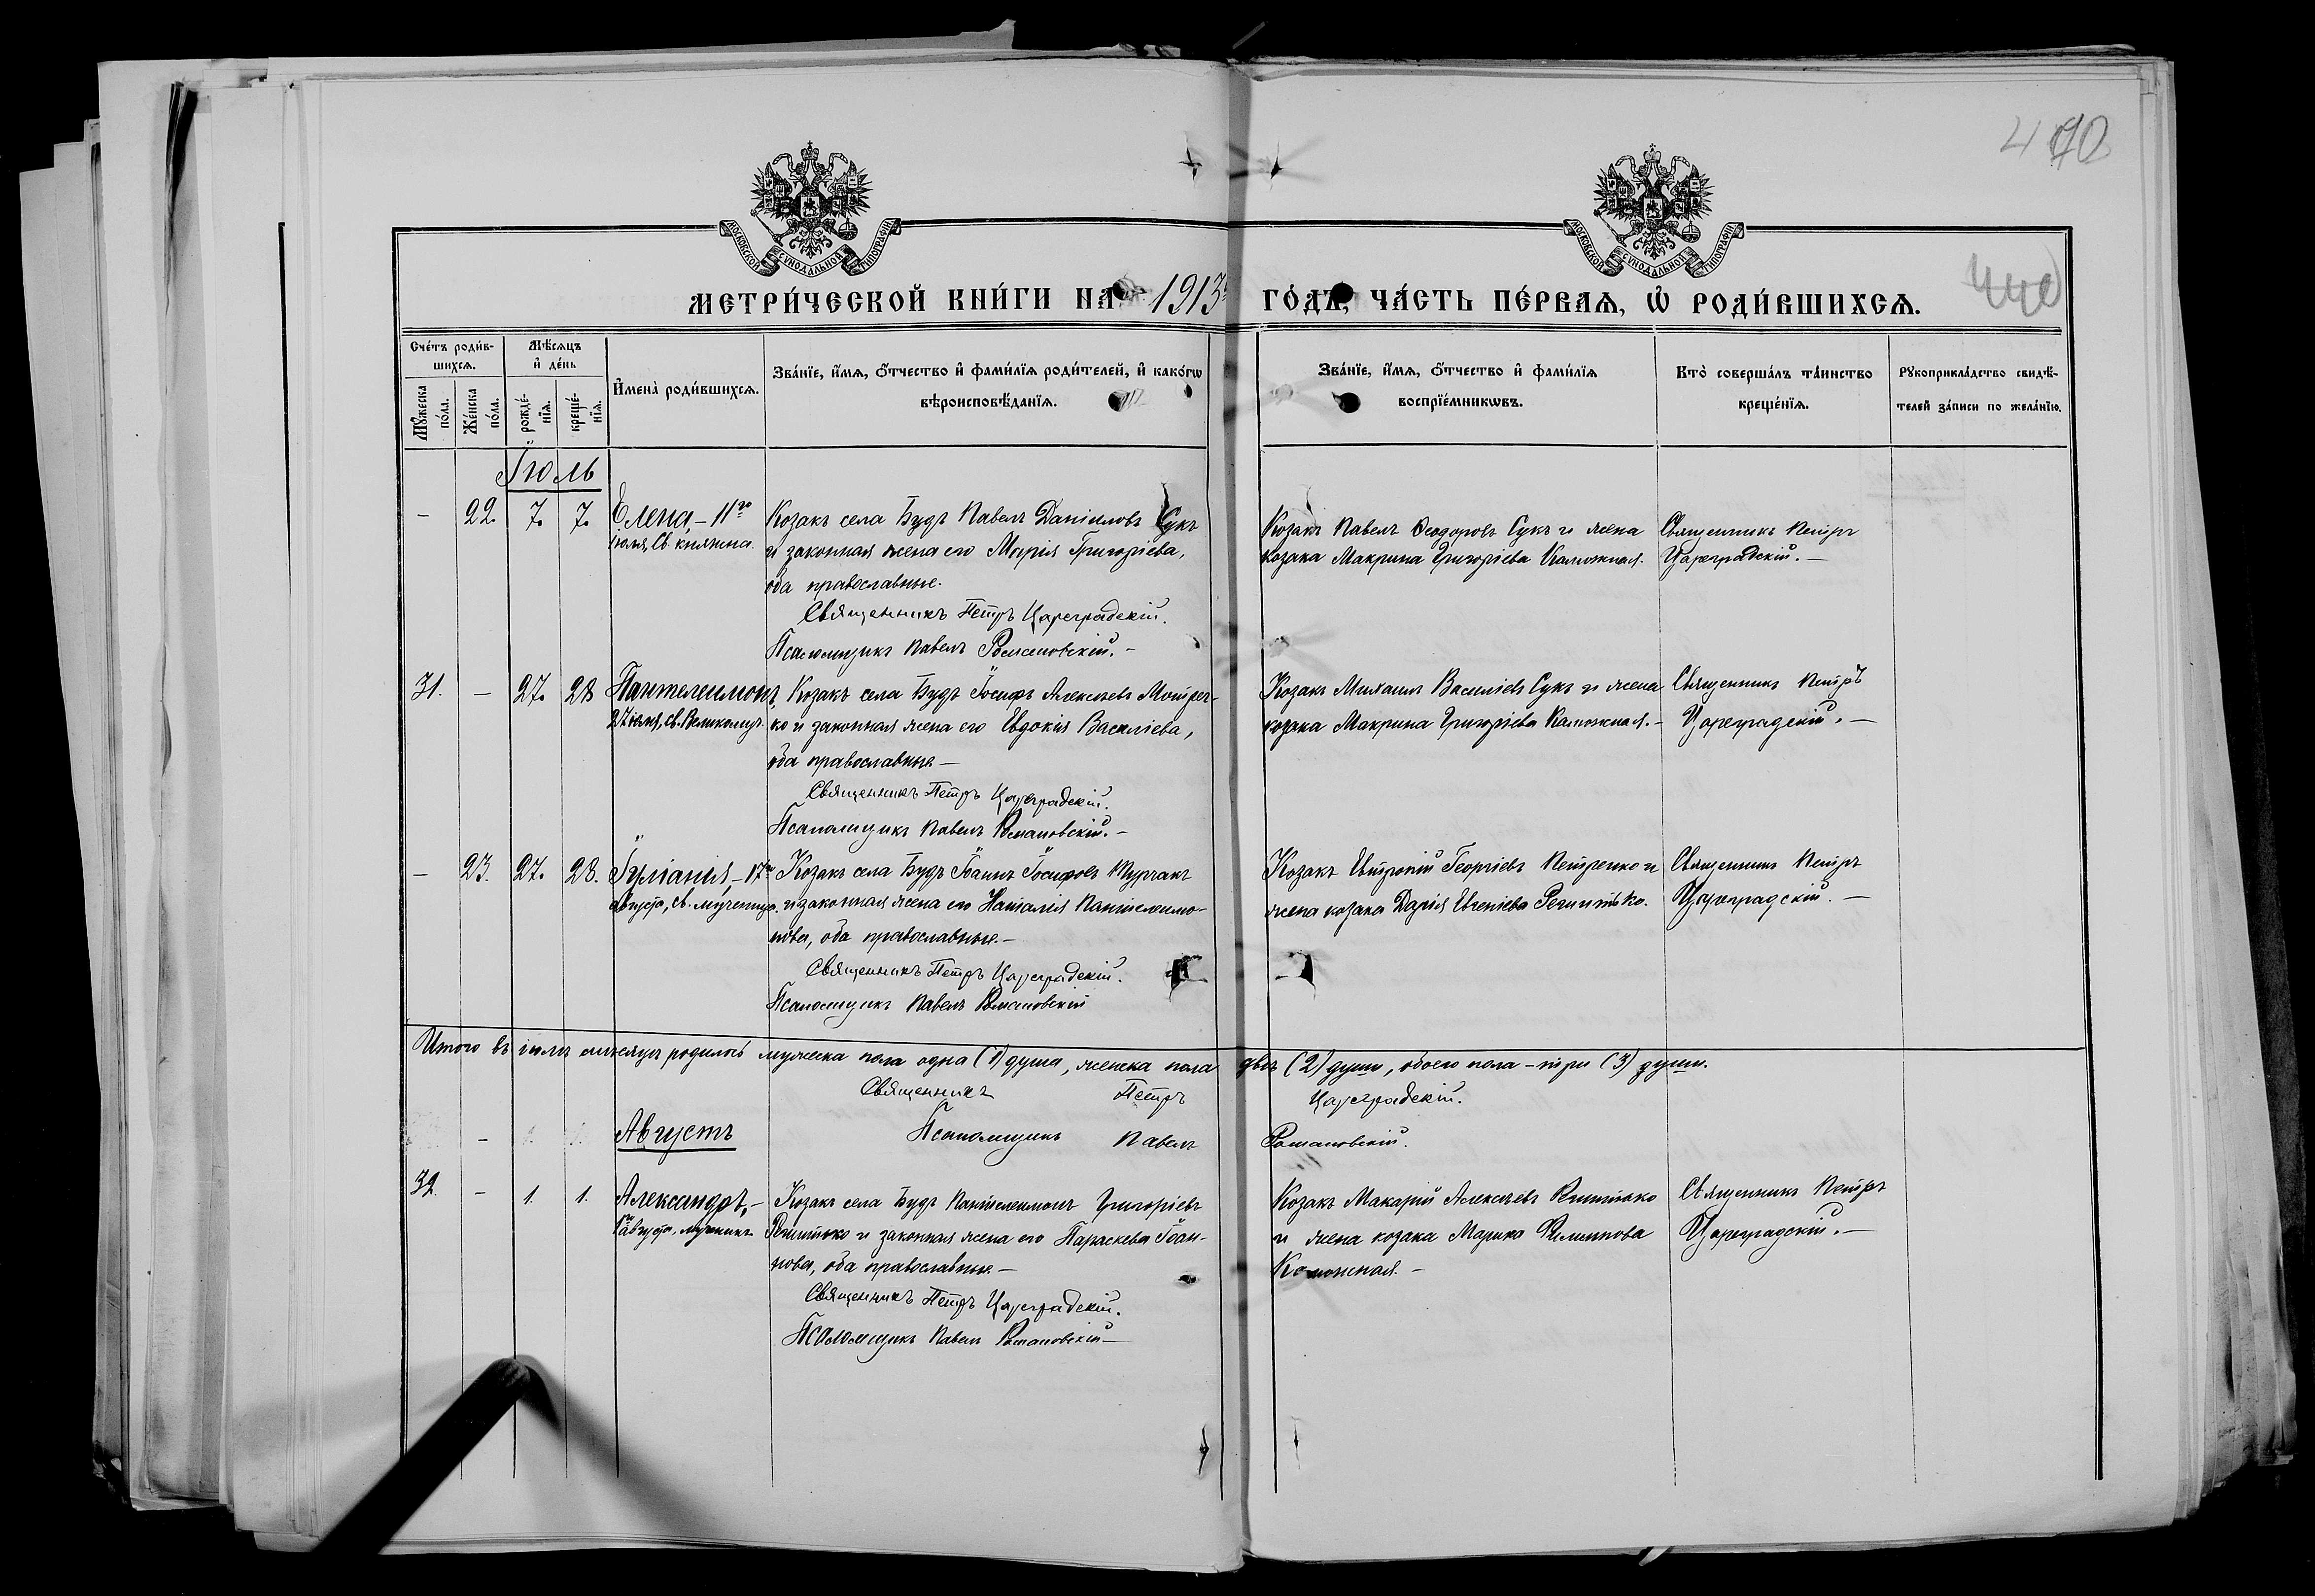 470
440
МОСКОВСКОЙ СУНОДАЛЬНОЙ ТИПОГРАФІИ
МОСКОВСКОЙ СУНОДАЛЬНОЙ ТИПОГРАФІИ
МЕТРИ́ЧЕСКОЙ КНИ́ГИ НА 1913й ГО́ДЪ, ЧА́СТЬ ПЕ́РВАѦ, Ѡ҆ РОДИ́ВШИХСѦ.
Сче́тъ роди́в-
шихсѧ.
Мꙋ́жеска
по́ла.
Же́нска
по́ла.
Мѣ́сѧцъ
и҆ де́нь
рожде́-
нїѧ.
креще́-
нїѧ.
И҆мена̀ роди́вшихсѧ.
Зва́нїе, и҆́мѧ, ѻ҆́тчество и҆ фами́лїѧ роди́телей, и҆ како́гѡ
вѣроисповѣ́данїѧ.
Зва́нїе, и҆́мѧ, ѻ҆́тчество и҆ фами́лїѧ
воспрїе́мникѡвъ.
Кто̀ соверша́лъ та́инство
креще́нїѧ.
Рꙋкоприкла́дство свидѣ́-
телей за́писи по жела́нїю.
Іюль
- 22. 7. 7. Елена, - 11го
іюля, Св. княгиня.
Козакъ села Будъ Павелъ Даніиловъ Сукъ
и законная жена его Марія Григоріева,
оба православные.
Священникъ Петръ Цареградскій.
Псаломщикъ Павелъ Романовскій. -
Козакъ Павелъ Ѳеодоровъ Сукъ и жена
козака Макрина Григоріева Каложная.
Священникъ Петръ
Цареградскій. -
31. - 27. 28 Пантелеимонъ,
27 іюля, св. Великомуч.
Козакъ села Будъ Іосифъ Алексѣевъ Мотрен-
ко и законная жена его Евдокія Василіева,
оба православные -
Священникъ Петръ Цареградскій.
Псаломщикъ Павелъ Романовскій. -
Козакъ Михаилъ Василіевъ Сукъ и жена
козака Макрина Григоріева Каложная. -
Священникъ Петръ
Цареградскій. -
- 23. 27. 28. Іуліанія, - 17го
августа, св. мученица.
Козакъ села Будъ Іоаннъ Іосифовъ
и законная жена его Наталія Пантелеимо-
нова, оба православные. -
Священникъ Петръ Цареградскій.
Псаломщикъ Павелъ Романовскій
Козакъ Георгіевъ Петренко и
жена козака Дарія Евгеніева Решитько.
Священникъ Петръ
Цареградскій. -
Итого въ іюлѣ мѣсяцѣ родилось мужеска пола одна (1) душа, женска пола двѣ (2) души, обоего пола - три (3) души.
Священникъ Петръ Цареградскій.
Августъ
Псаломщикъ Павелъ Романовскій.
32. - 1. 1. Александръ, -
1го августа, мученикъ
Козакъ села Будъ Пантелеимонъ Григоріевъ
Решитько и законная жена его Параскева Іоан-
нова, оба православные -
Священникъ Петръ Цареградскій.
Псаломщикъ Павелъ Романовскій -
Козакъ Макарій Алексѣевъ Решитько
и жена козака Филиппова
Каложная. -
Священникъ Петръ
Цареградскій. -